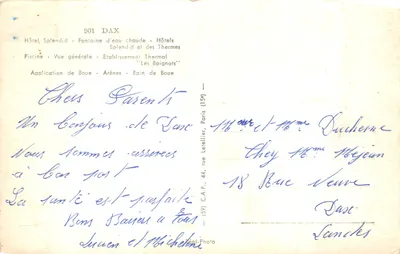 901 DAX
Hôtel Splendid - Fontaine d'eau chaude - Hôtels
Splendid et des Thermes
Piscine - Vue générale - Etablissement Thermal
"Les Baignots"
Application de Boue - Arènes - Bain de Boue
Chers Parents
Un bonjour de Dax
Nous sommes arrivés
à bon port
La santé est parfaite
Bons Baisers à tous
Lucien et Micheline
(59) C.A.P. 44, rue Letellier, Paris (15e)
Mme et Mme Duchesne
Chez Mme Mejean
18 Rue Neuve
Dax
Landes